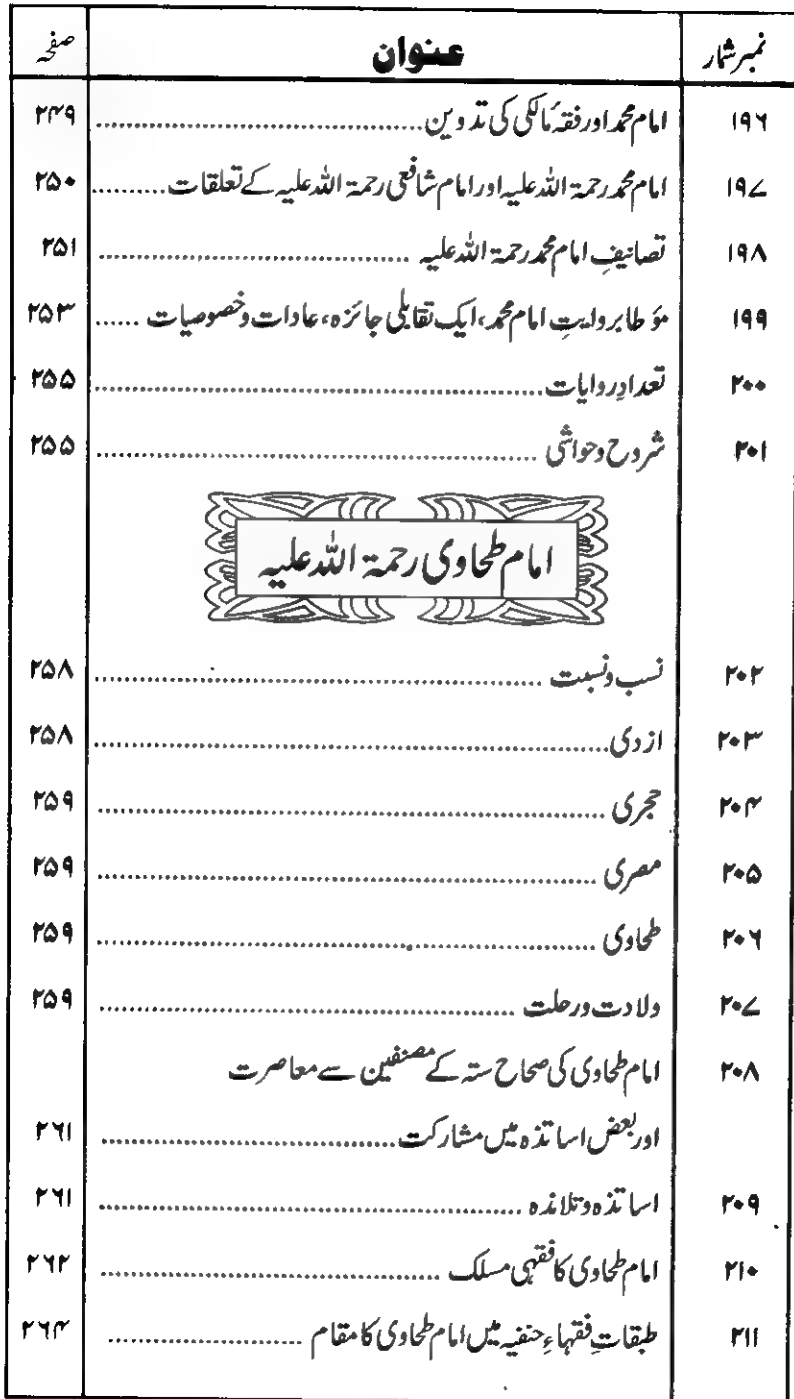 نمبرشمار عنوان صفحہ
۱۹۶ امام محمد اور فقہ مالکی کی تدوین ۲۴۹
۱۹۷ امام محمد رحمۃ اللہ علیہ اور امام شافعی رحمۃ اللہ علیہ کے تعلقات ۲۵۰
۱۹۸ تصانیفِ امام محمد رحمۃ اللہ علیہ ۲۵۱
۱۹۹ مؤطا بروایتِ امام محمد، ایک تقابلی جائزہ، عادات وخصوصیات ۲۵۳
۲۰۰ تعدادِ روایات ۲۵۵
۲۰۱ شروح وحواشی ۲۵۵
امام طحاوی رحمۃ اللہ علیہ
۲۰۲ نسب ونسبت ۲۵۸
۲۰۳ ازدی ۲۵۸
۲۰۴ حجری ۲۵۹
۲۰۵ مصری ۲۵۹
۲۰۶ طحاوی ۲۵۹
۲۰۷ ولادت ورحلت ۲۵۹
۲۰۸ امام طحاوی کی صحاح ستہ کے مصنفین سے معاصرت
اور بعض اساتذہ میں مشارکت ۲۶۱
۲۰۹ اساتذہ وتلامذہ ۲۶۱
۲۱۰ امام طحاوی کا فقہی مسلک ۲۶۲
۲۱۱ طبقاتِ فقہاءِ حنفیہ میں امام طحاوی کا مقام ۲۶۴